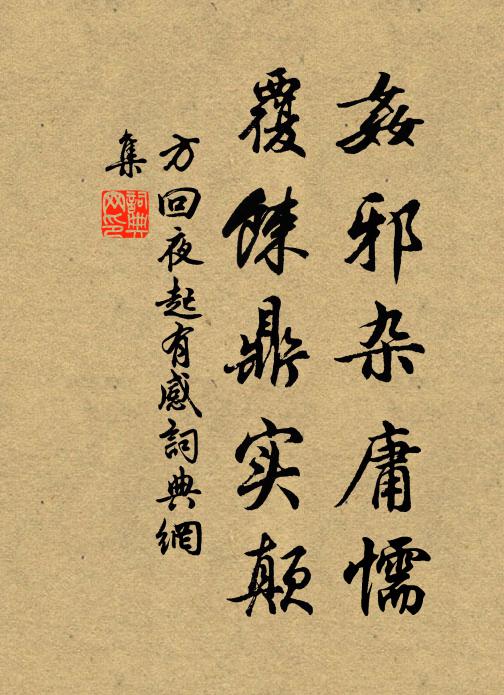 姦邪杂庸懦
覆餗鼎实颠
方回夜起有感詞典網
集
詞典网印